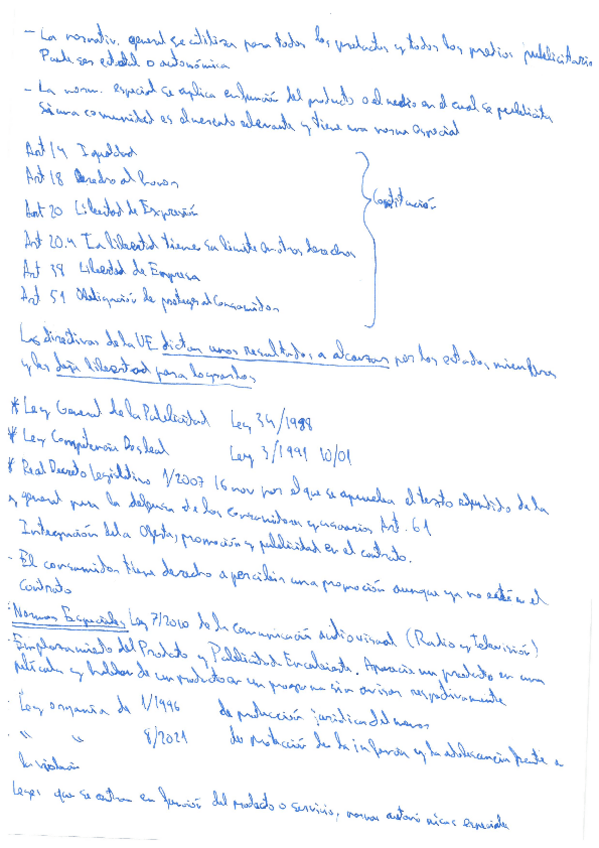 - La normativ. general se utiliza para todos los productos y todos los medios publicitarios
Puede ser estatal o autonómica
- La norm. especial se aplica en función del producto o el medio en el cual se publicita
Si una comunidad es al verlo relevante y tiene una norma especial
Art 14 Igualdad
Art 18 Derecho al honor
Art 20 Libertad de Expresión
Art 20.4 La libertad tiene su límite en otros derechos
Art 38 Libertad de Empresa
Art 51 Obligación de proteger al Consumidor
Constitución
Las directivas de la UE dictan unos resultados a alcanzar por los estados miembros
y les deja libertad para lograrlos
* Ley General de la Publicidad Ley 34/1988
* Ley Competencia Desleal Ley 3/1991 10/01
* Real Decreto Legislativo 1/2007 16 nov por el que se aprueba el texto de la
y general para la defensa de los consumidores y usuarios Art. 61
Integración de la Oferta, promoción y publicidad en el contrato.
- El consumidor tiene derecho a percibir una promoción aunque ya no esté en el
contrato
· Normas Especiales Ley 7/2010 de la Comunicación audiovisual (Radio y Televisión)
· Emplazamiento del Producto y Publicidad Encubierta. Aparece un producto en una
película y hablar de un producto en un programa sin avisar respectivamente
· Ley organica de 1/1996 de protección jurídica del menor
· " " 8/2021 de protección de la infancia y la adolescencia frente a
la violencia
Leyes que se centran en función del producto o servicio, normas autonómicas especiales